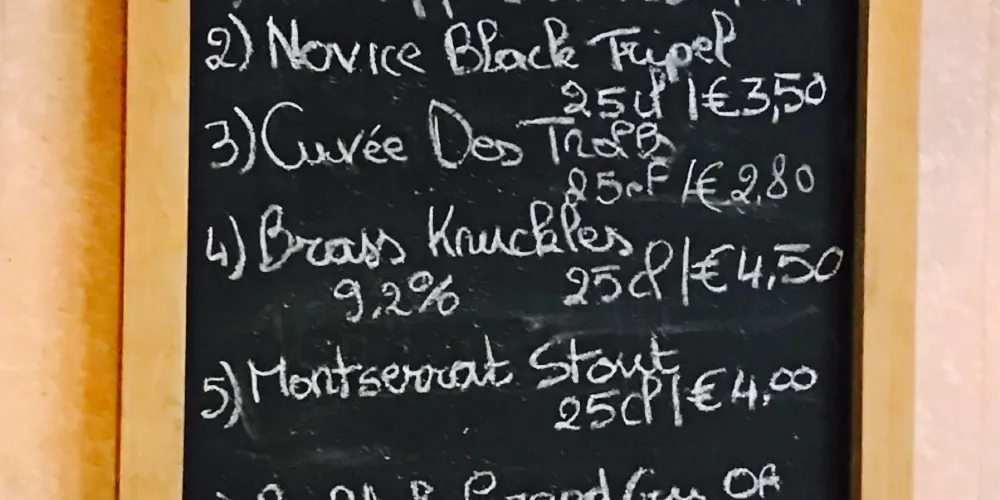 2) Novice Black Tripel
25cl | € 3,50
3) Cuvée Des Trolls
25cl | € 2,80
4) Brass Knuckles
9,2% 25cl | € 4,50
5) Montserrat Stout
25cl | € 4,00
Grand Cru